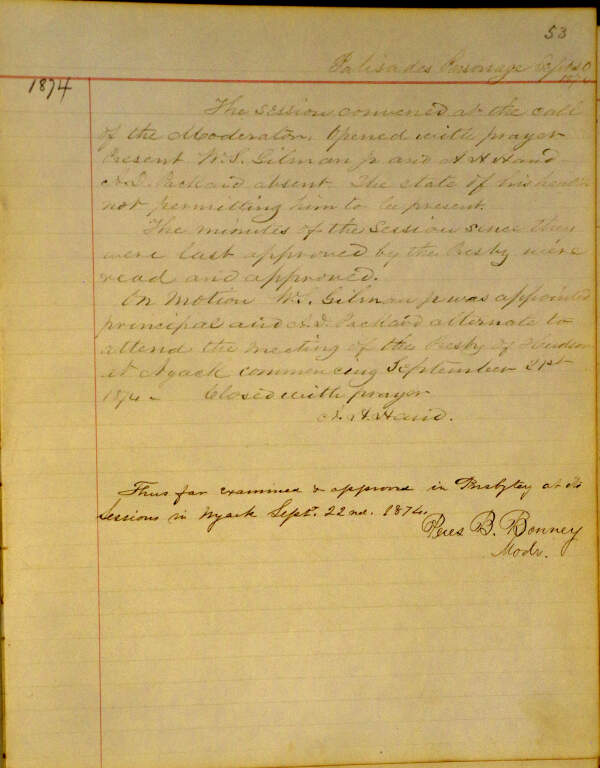 53
Palisades Parsonage Sept
1874
1874
The session convened at the call
of the Moderator. Opened with prayer
Present W. S. Gilman jr and A H Hand
A. D. Packard absent. The state of his health
not permitting him to be present.
The minutes of the Session since they
were last approved by the Presby were
read and approved.
On motion W. S. Gilman jr was appointed
principal and A. D. Packard alternate to
attend the meeting of the Presby of Hudson
at Nyack commencing September 21st
1874 - Closed with prayer
A. H. Hand.
Thus far examined & approved in Presbytey at its
Sessions in Nyack Sept. 22nd. 1874.
Peres B. Bonney
Modr.